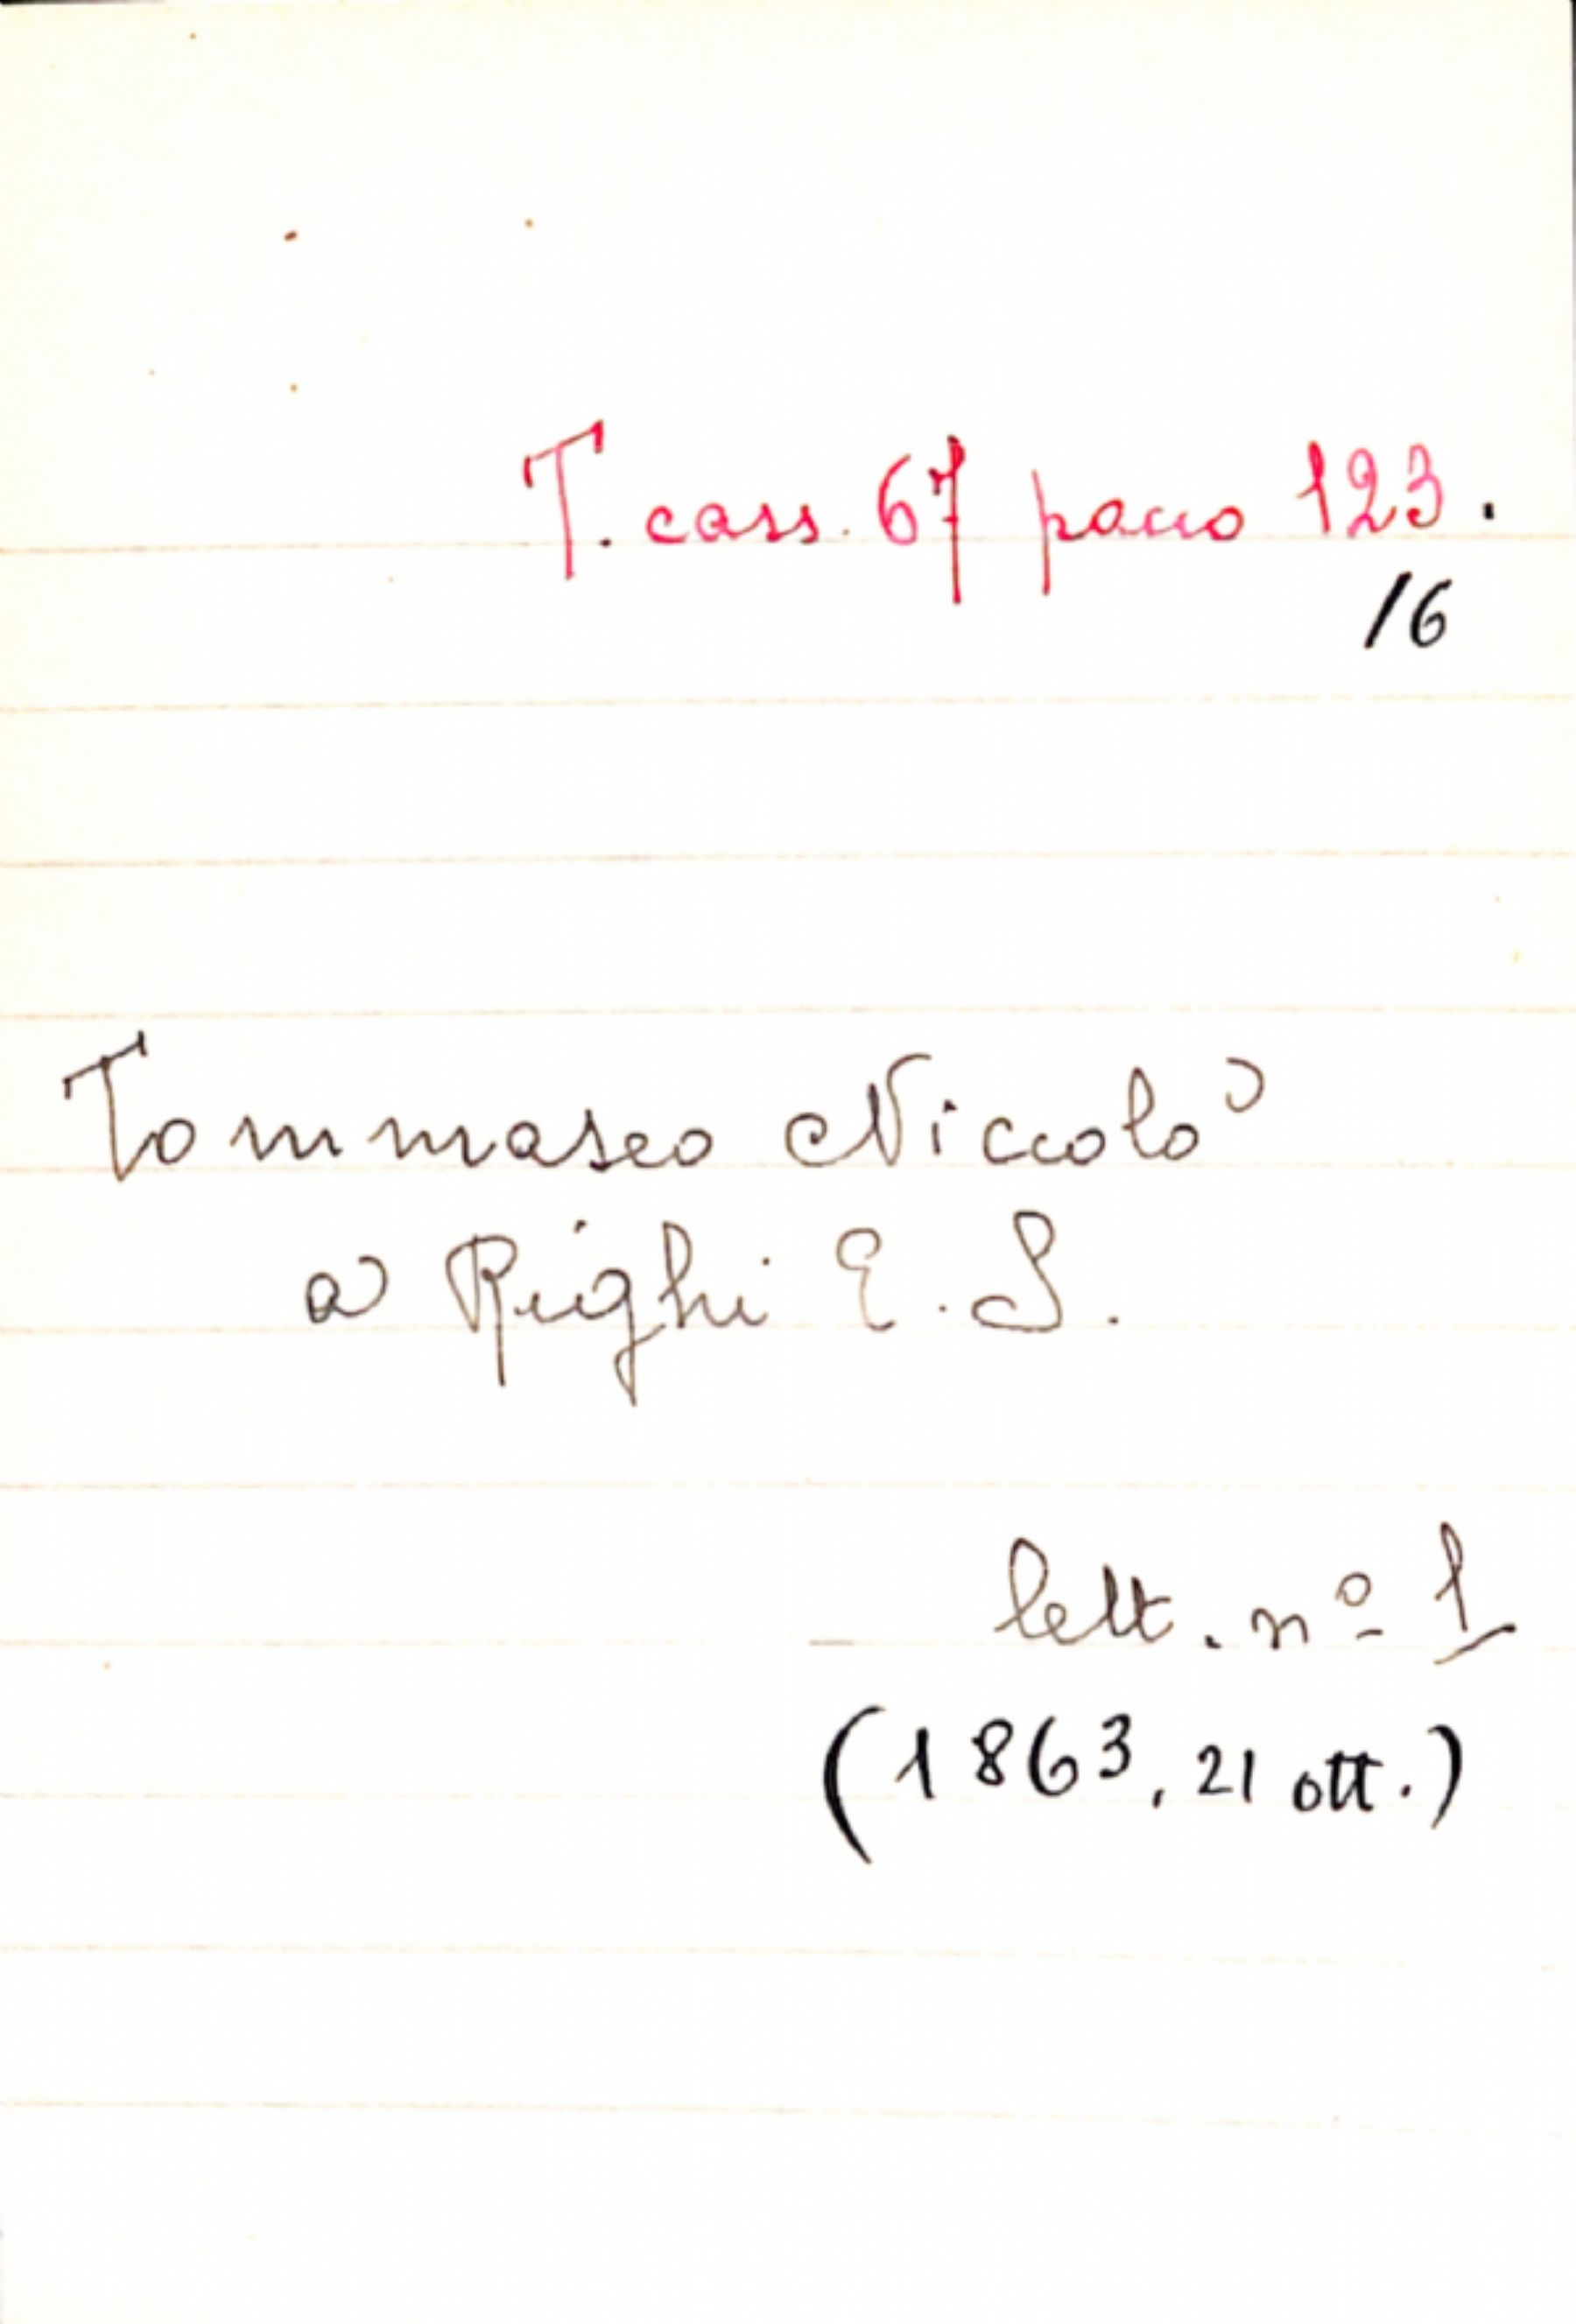 T. cass. 67 pacco 123.
/6
Tommaseo Niccolò
a Righi E. S.
lett. nº 1
(1863, 21 ott.)